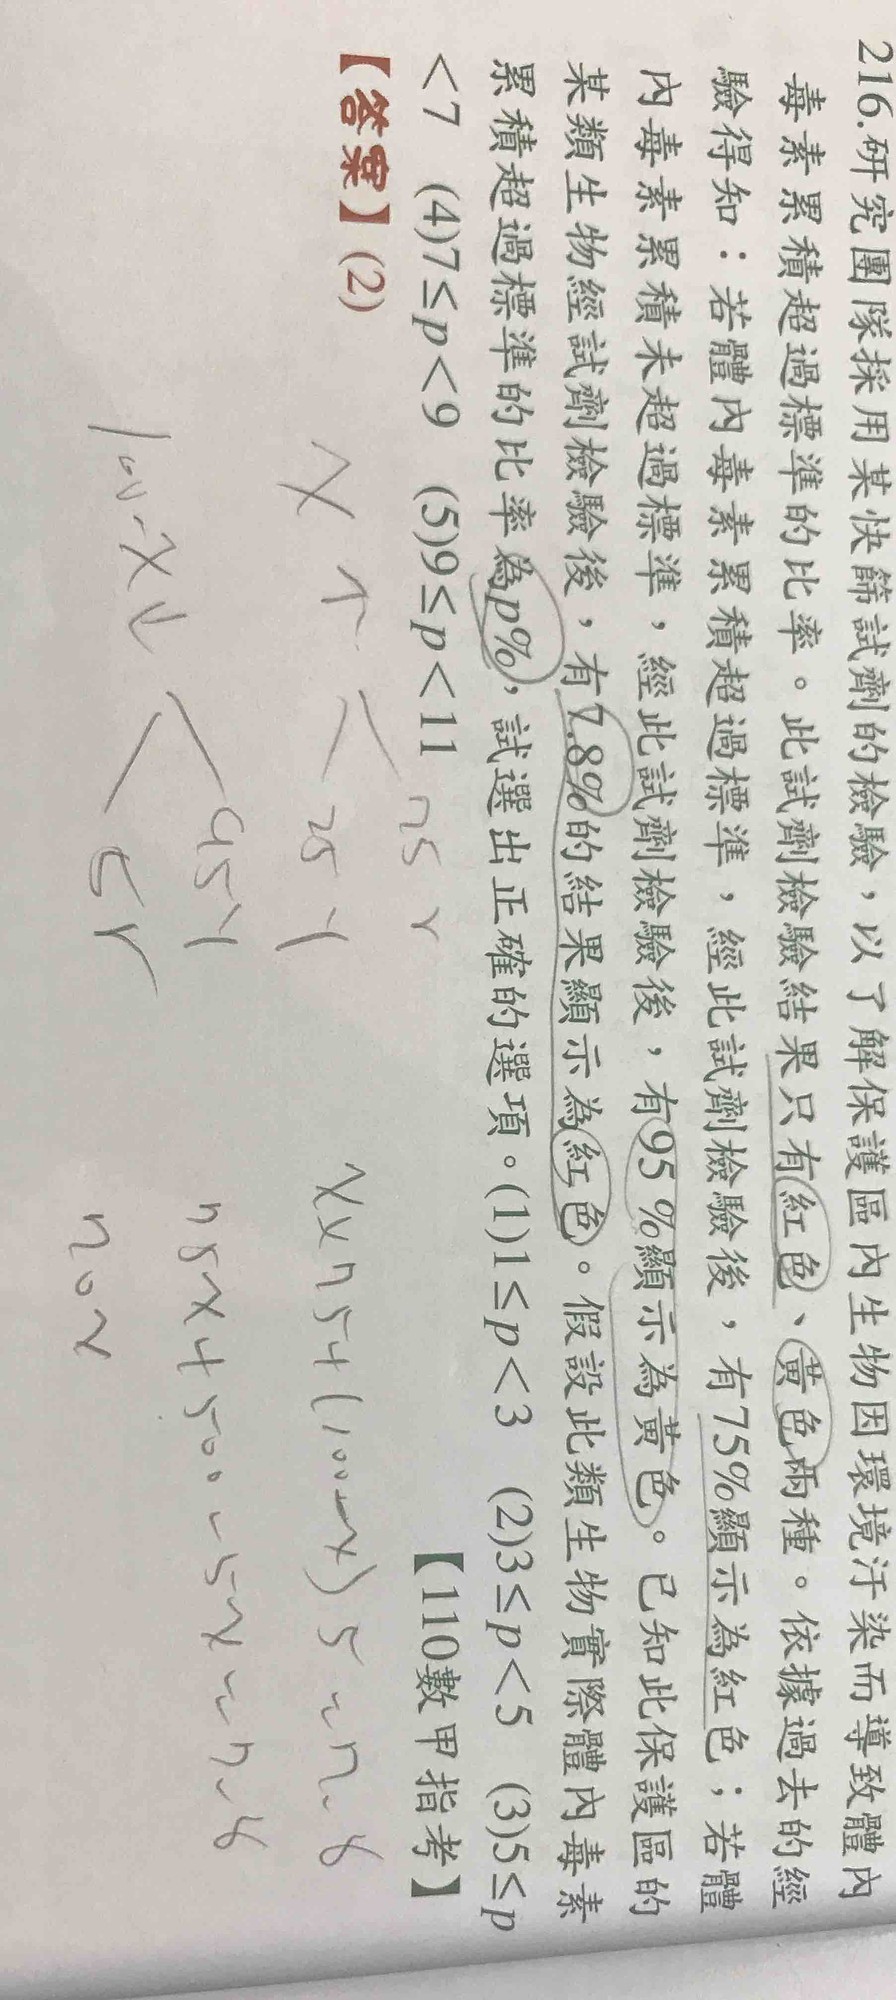 216.研究團隊採用某快篩試劑的檢驗，以了解保護區內生物因環境汙染而導致體內
毒素累積超過標準的比率。此試劑檢驗結果只有紅色、黃色兩種。依據過去的經
驗得知：若體內毒素累積超過標準，經此試劑檢驗後，有75%顯示為紅色；若體
內毒素累積未超過標準，經此試劑檢驗後，有95%顯示為黃色。已知此保護區的
某類生物經試劑檢驗後，有7.8%的結果顯示為紅色。假設此類生物實際體內毒素
累積超過標準的比率為p%，試選出正確的選項。(1)1≤p<3 (2)3≤p<5 (3)5≤p
<7 (4)7≤p<9 (5)9≤p<11 【110數甲指考】
【答案】(2)
x↑
75 r
25 y
100-x↓
95 y
5 r
x×75+(100-x)5=7.8
75x+500-5x=7.8
70x